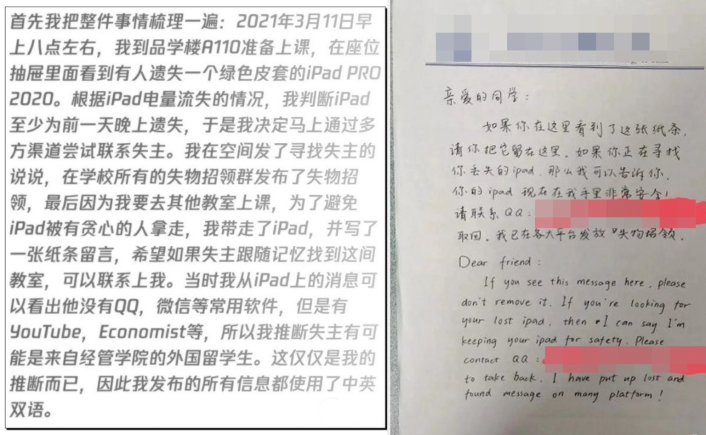 首先我把整件事情梳理一遍：2021年3月11日早
上八点左右，我到品学楼A110准备上课，在座位
抽屉里面看到有人遗失一个绿色皮套的iPad PRO
2020。根据iPad电量流失的情况，我判断iPad
至少为前一天晚上遗失，于是我决定马上通过多
方渠道尝试联系失主。我在空间发了寻找失主的
说说，在学校所有的失物招领群发布了失物招
领，最后因为我要去其他教室上课，为了避免
iPad被有贪心的人拿走，我带走了iPad，并写了
一张纸条留言，希望如果失主跟随记忆找到这间
教室，可以联系上我。当时我从iPad上的消息可
以看出他没有QQ，微信等常用软件，但是有
YouTube，Economist等，所以我推断失主有可
能是来自经管学院的外国留学生。这仅仅是我的
推断而已，因此我发布的所有信息都使用了中英
双语。
亲爱的同学：
如果你在这里看到了这张纸条，
请你把它留在这里。如果你正在寻找
你丢失的ipad，那么我可以告诉你，
你的ipad现在在我手里非常安全！
请联系QQ：
取回。我已在各大平台发放“失物招领。
Dear friend：
If you see this message here, please
don't remove it. If you're looking for
your lost ipad, then I can say I'm
keeping your ipad for safety. Please
contact QQ：
to take back. I have put up lost and
found message on many platform！